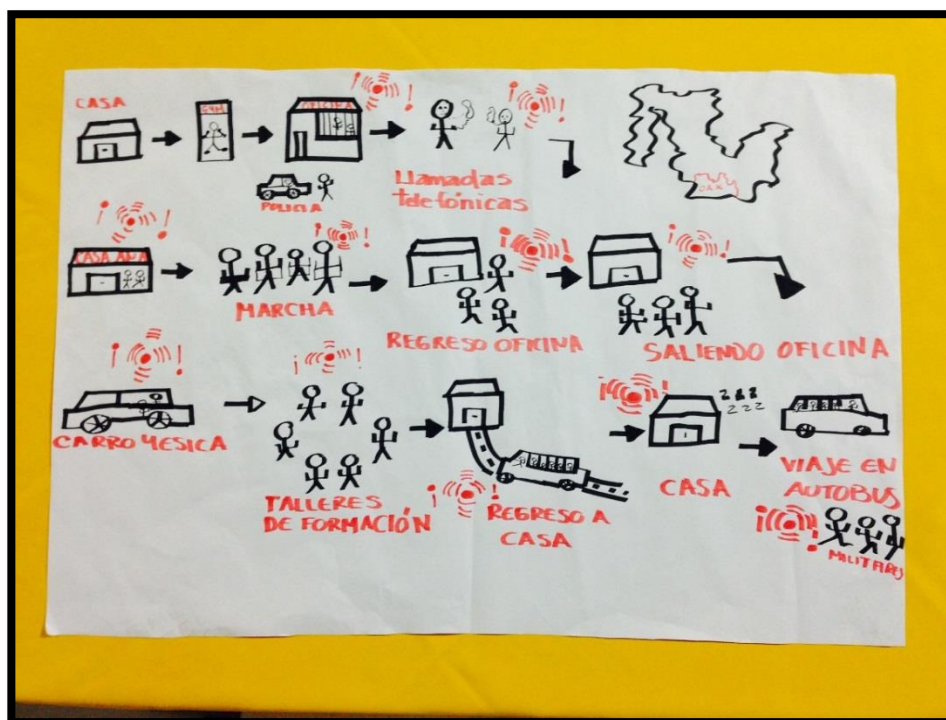 CASA
GYM
OFICINA
POLICIA
Llamadas
telefónicas
OAX
CASA ANA
MARCHA
REGRESO OFICINA
SALIENDO OFICINA
CARRO YESICA
TALLERES
DE FORMACIÓN
REGRESO A
CASA
zzz
zzz
CASA
VIAJE EN
AUTOBUS
MILITARES